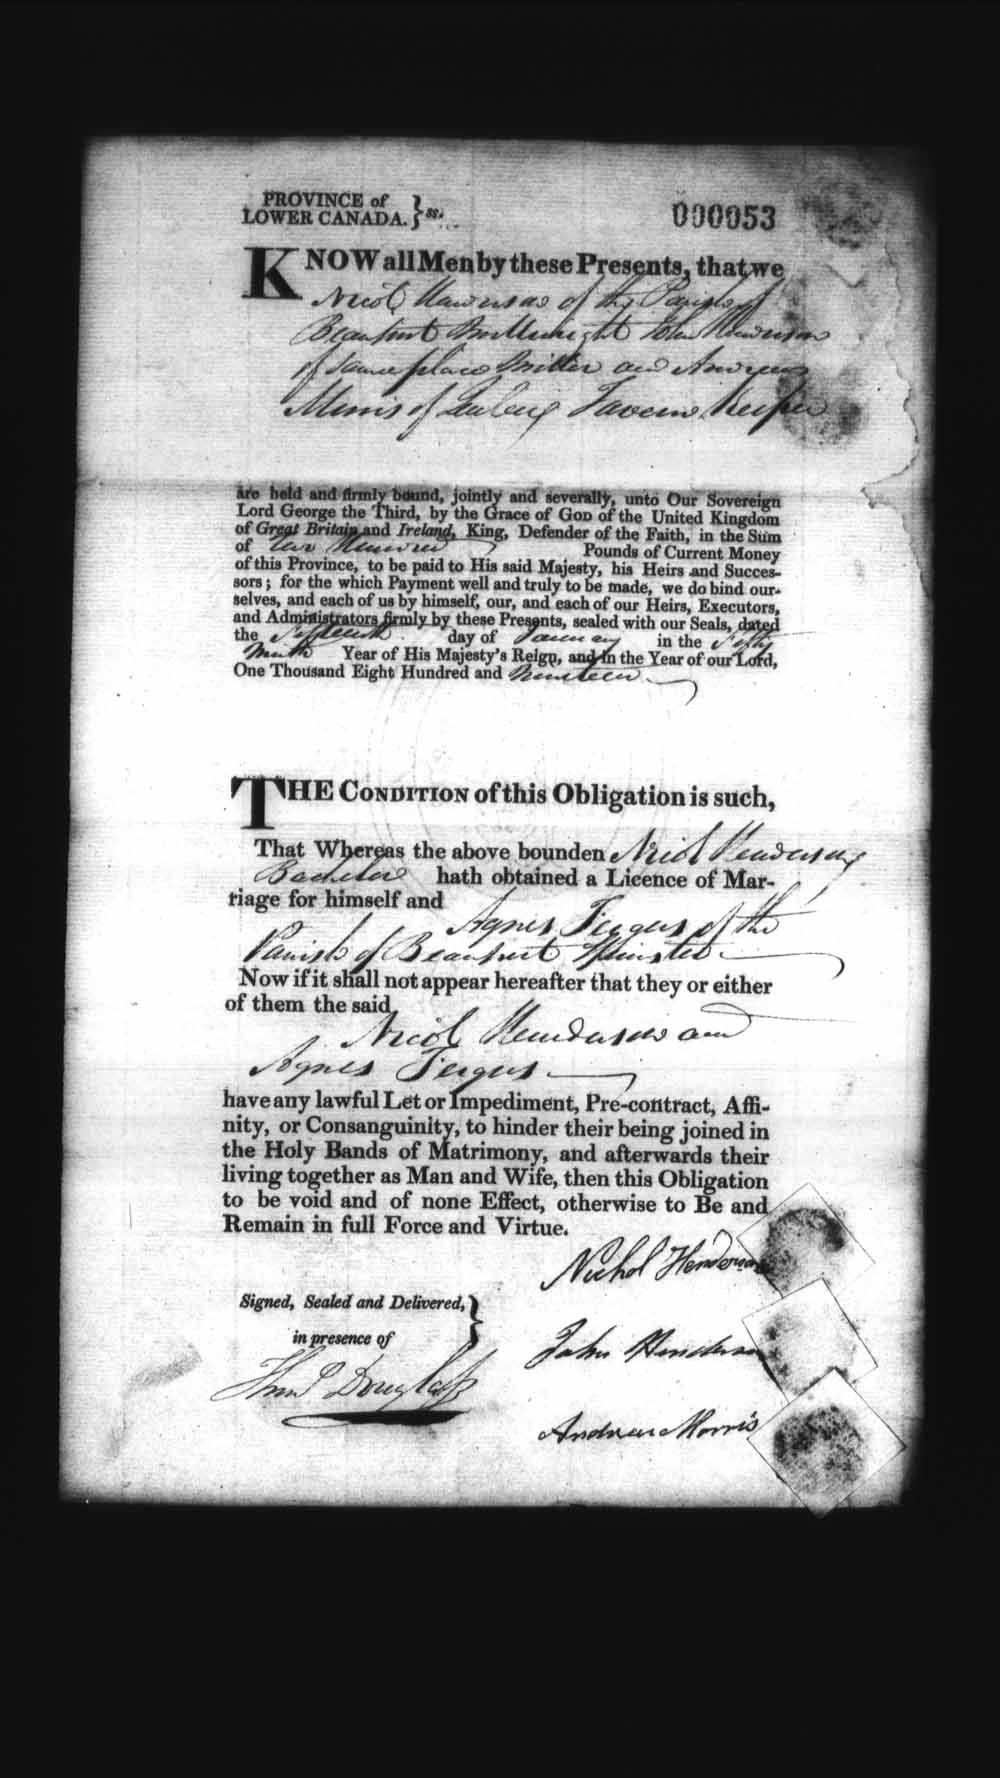 PROVINCE of
LOWER CANADA. } ss.
000053
KNOW all Men by these Presents, that we
Nicol Henderson of the Parish of
Beauport Millwright John Henderson
of same place Miller and Andrew
Morris of Quebec Tavern Keeper
are held and firmly bound, jointly and severally, unto Our Sovereign
Lord George the Third, by the Grace of GOD of the United Kingdom
of Great Britain and Ireland, King, Defender of the Faith, in the Sum
of Two Hundred Pounds of Current Money
of this Province, to be paid to His said Majesty, his Heirs and Succes-
sors; for the which Payment well and truly to be made, we do bind our-
selves, and each of us by himself, our, and each of our Heirs, Executors,
and Administrators firmly by these Presents, sealed with our Seals, dated
the Fifteenth day of January in the Fifty
Ninth Year of His Majesty's Reign, and in the Year of our Lord,
One Thousand Eight Hundred and Nineteen
THE CONDITION of this Obligation is such,
That Whereas the above bounden Nicol Henderson
Bachelor hath obtained a Licence of Mar-
riage for himself and
Agnes Fergus of the
Parish of Beauport Spinster
Now if it shall not appear hereafter that they or either
of them the said
Nicol Henderson and
Agnes Fergus
have any lawful Let or Impediment, Pre-contract, Affi-
nity, or Consanguinity, to hinder their being joined in
the Holy Bands of Matrimony, and afterwards their
living together as Man and Wife, then this Obligation
to be void and of none Effect, otherwise to Be and
Remain in full Force and Virtue.
Nichol Henderson
Signed, Sealed and Delivered, }
in presence of
John Henderson
Douglass
Andrew Morris